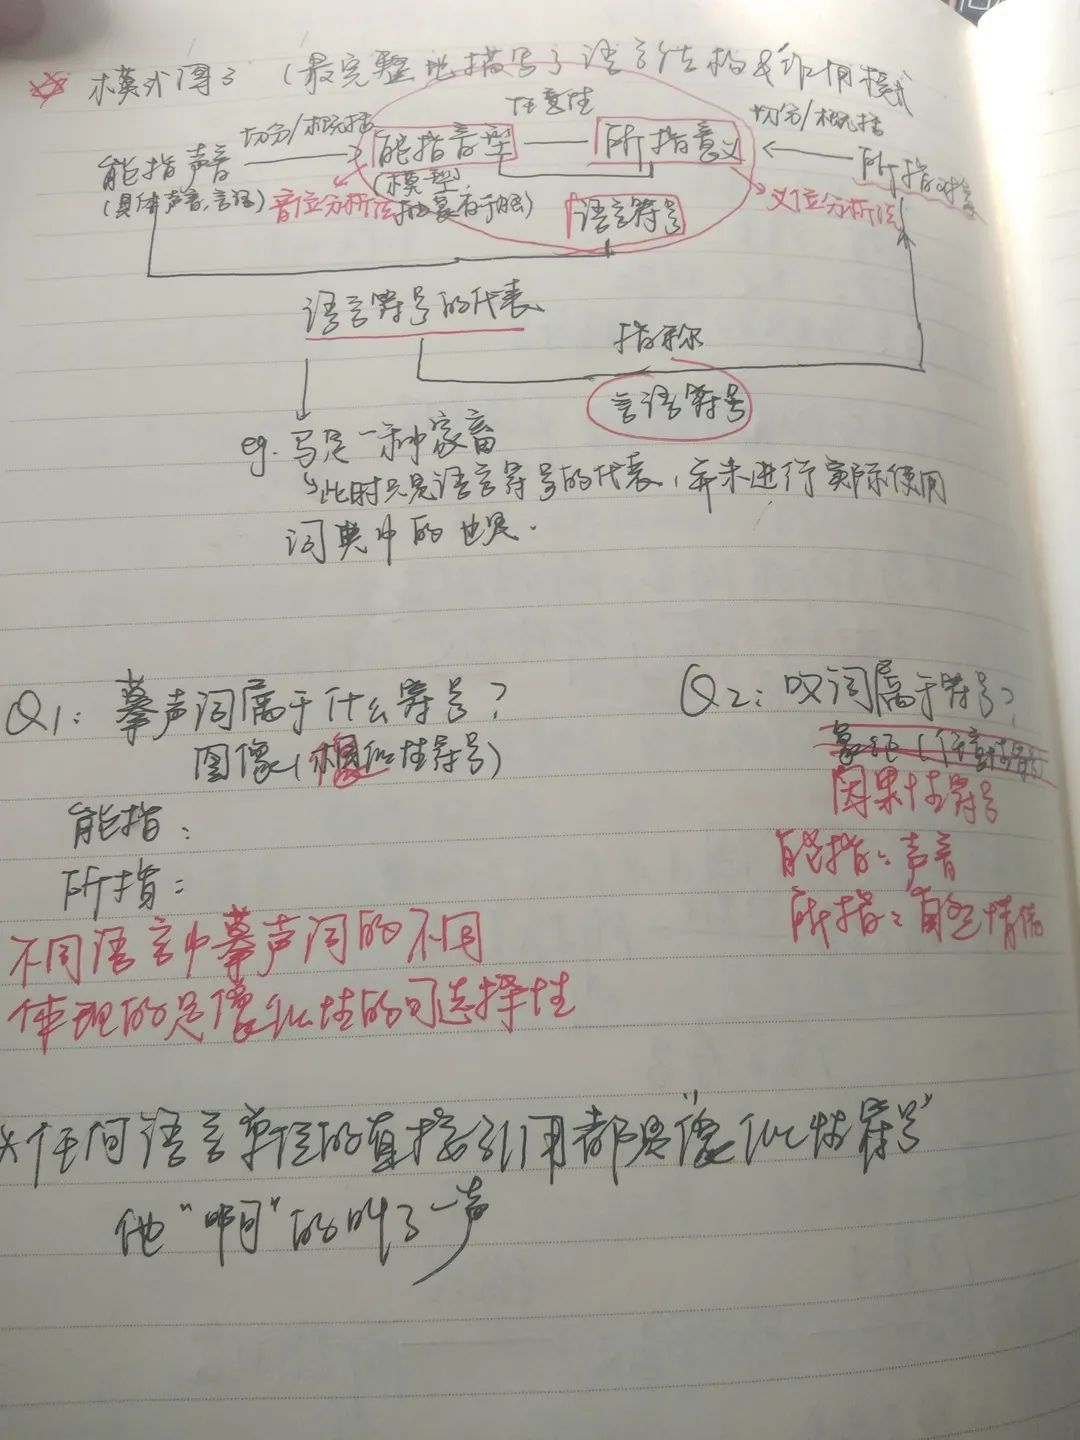 模式图3 (最完整地描写了语言结构&作用模式
能指声音 切分/概括 能指音型 任意性 所指意义 切分/概括 所指对象
(具体声音,言语) 音位分析法 (模型, 义位分析法
语言符号
语言符号的代表
指称
言语符号
eg. 马是一种家畜
此时只是语言符号的代表,并未进行实际使用
词典中的也是.
Q1: 摹声词属于什么符号?
图像(像似性符号)
能指:
所指:
不同语言中摹声词的不同
体现的是像似性的可选择性
Q2: 叹词属于符号?
因果性符号
能指:声音
所指:
*任何语言单位的直接引用都是"像似性符号"
他"啊"的叫了一声